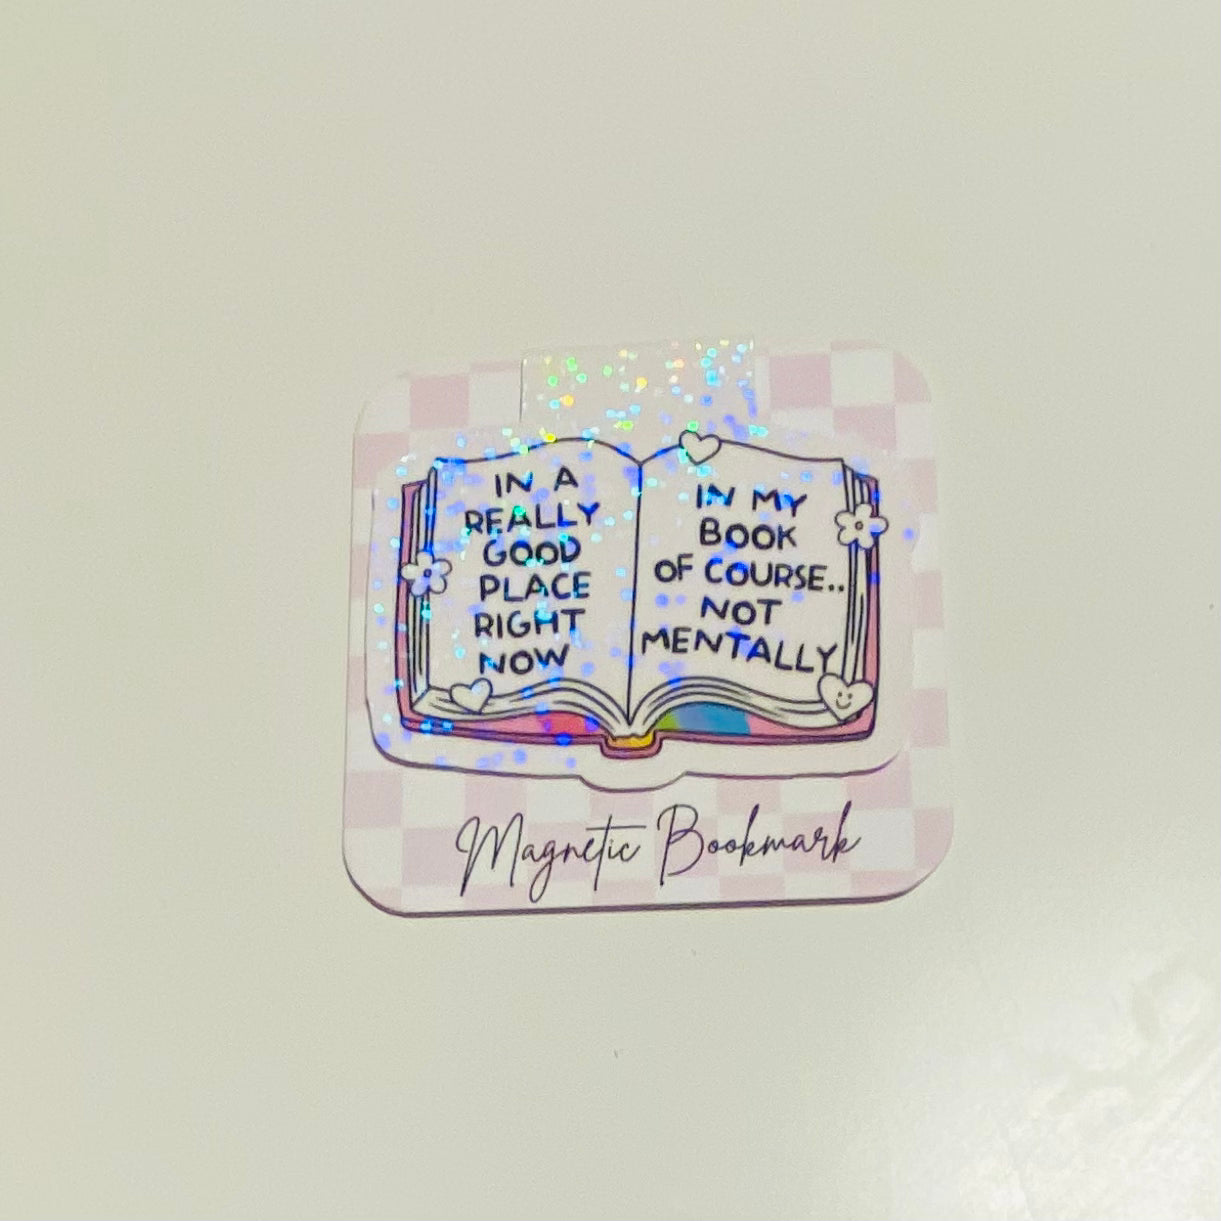 IN A
REALLY
GOOD
PLACE
RIGHT
NOW
IN MY
BOOK
OF COURSE..
NOT
MENTALLY
Magnetic Bookmark